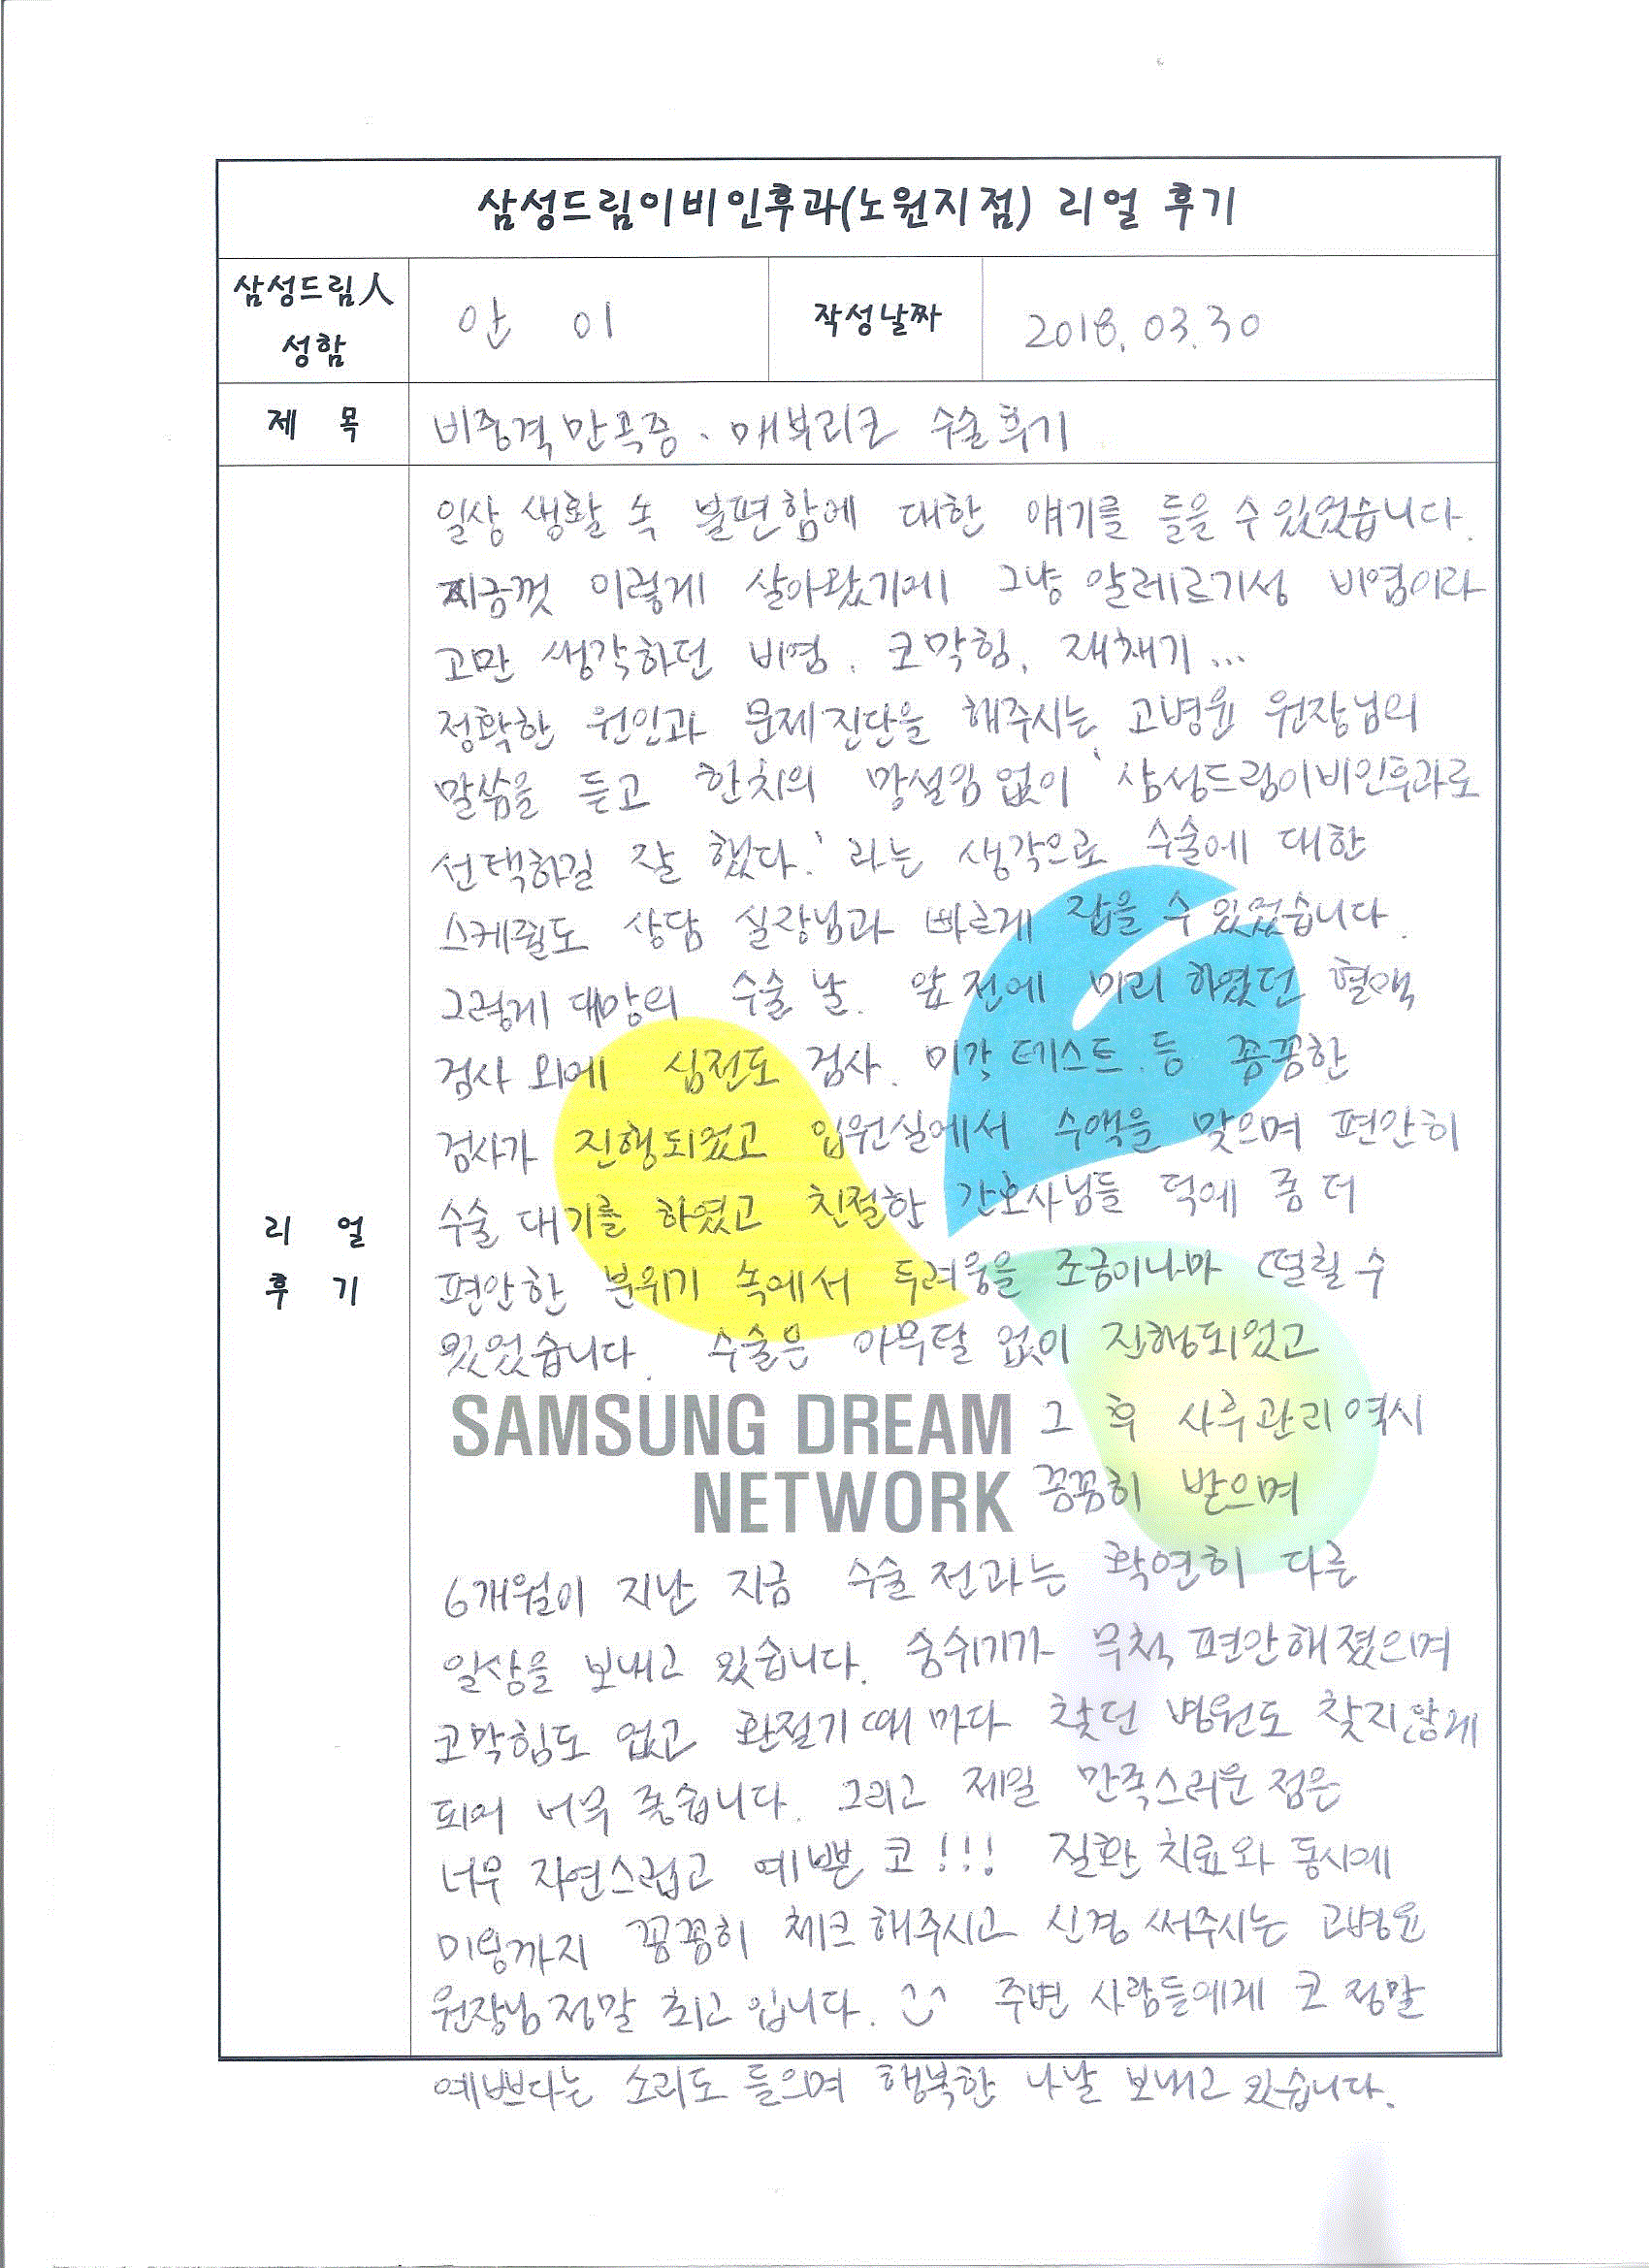 삼성드림이비인후과(노원지점) 리얼 후기
삼성드림人
성함
안 이
작성날짜
2018.03.30
제 목
비중격만곡증. 매부리코 수술후기
리 얼
후 기
일상 생활 속 불편함에 대한 얘기를 들을 수 있었습니다.
지금껏 이렇게 살아왔기에 그냥 알레르기성 비염이라
고만 생각하던 비염. 코막힘, 재채기...
정확한 원인과 문제진단을 해주시는 고병윤 원장님의
말씀을 듣고 한치의 망설임없이 '삼성드림이비인후과로
선택하길 잘 했다.' 라는 생각으로 수술에 대한
스케쥴도 상담 실장님과 빠르게 잡을 수 있었습니다.
그렇게 대망의 수술 날. 앞 전에 미리 하였던 혈액
검사 외에 심전도 검사. 미각 테스트 등 꼼꼼한
검사가 진행되었고 입원실에서 수액을 맞으며 편안히
수술 대기를 하였고 친절한 간호사님들 덕에 좀 더
편안한 분위기 속에서 두려움을 조금이나마 떨칠 수
있었습니다. 수술은 아무탈 없이 진행되었고
SAMSUNG DREAM 그 후 사후관리 역시
NETWORK 꼼꼼히 받으며
6개월이 지난 지금 수술 전과는 확연히 다른
일상을 보내고 있습니다. 숨쉬기가 무척 편안해졌으며
코막힘도 없고 환절기 때마다 찾던 병원도 찾지않게
되어 너무 좋습니다. 그리고 제일 만족스러운 점은
너무 자연스럽고 예쁜 코!!! 질환 치료와 동시에
미용까지 꼼꼼히 체크해주시고 신경 써주시는 고병윤
원장님 정말 최고 입니다. 주변 사람들에게 코 정말
예쁘다는 소리도 들으며 행복한 나날 보내고 있습니다.